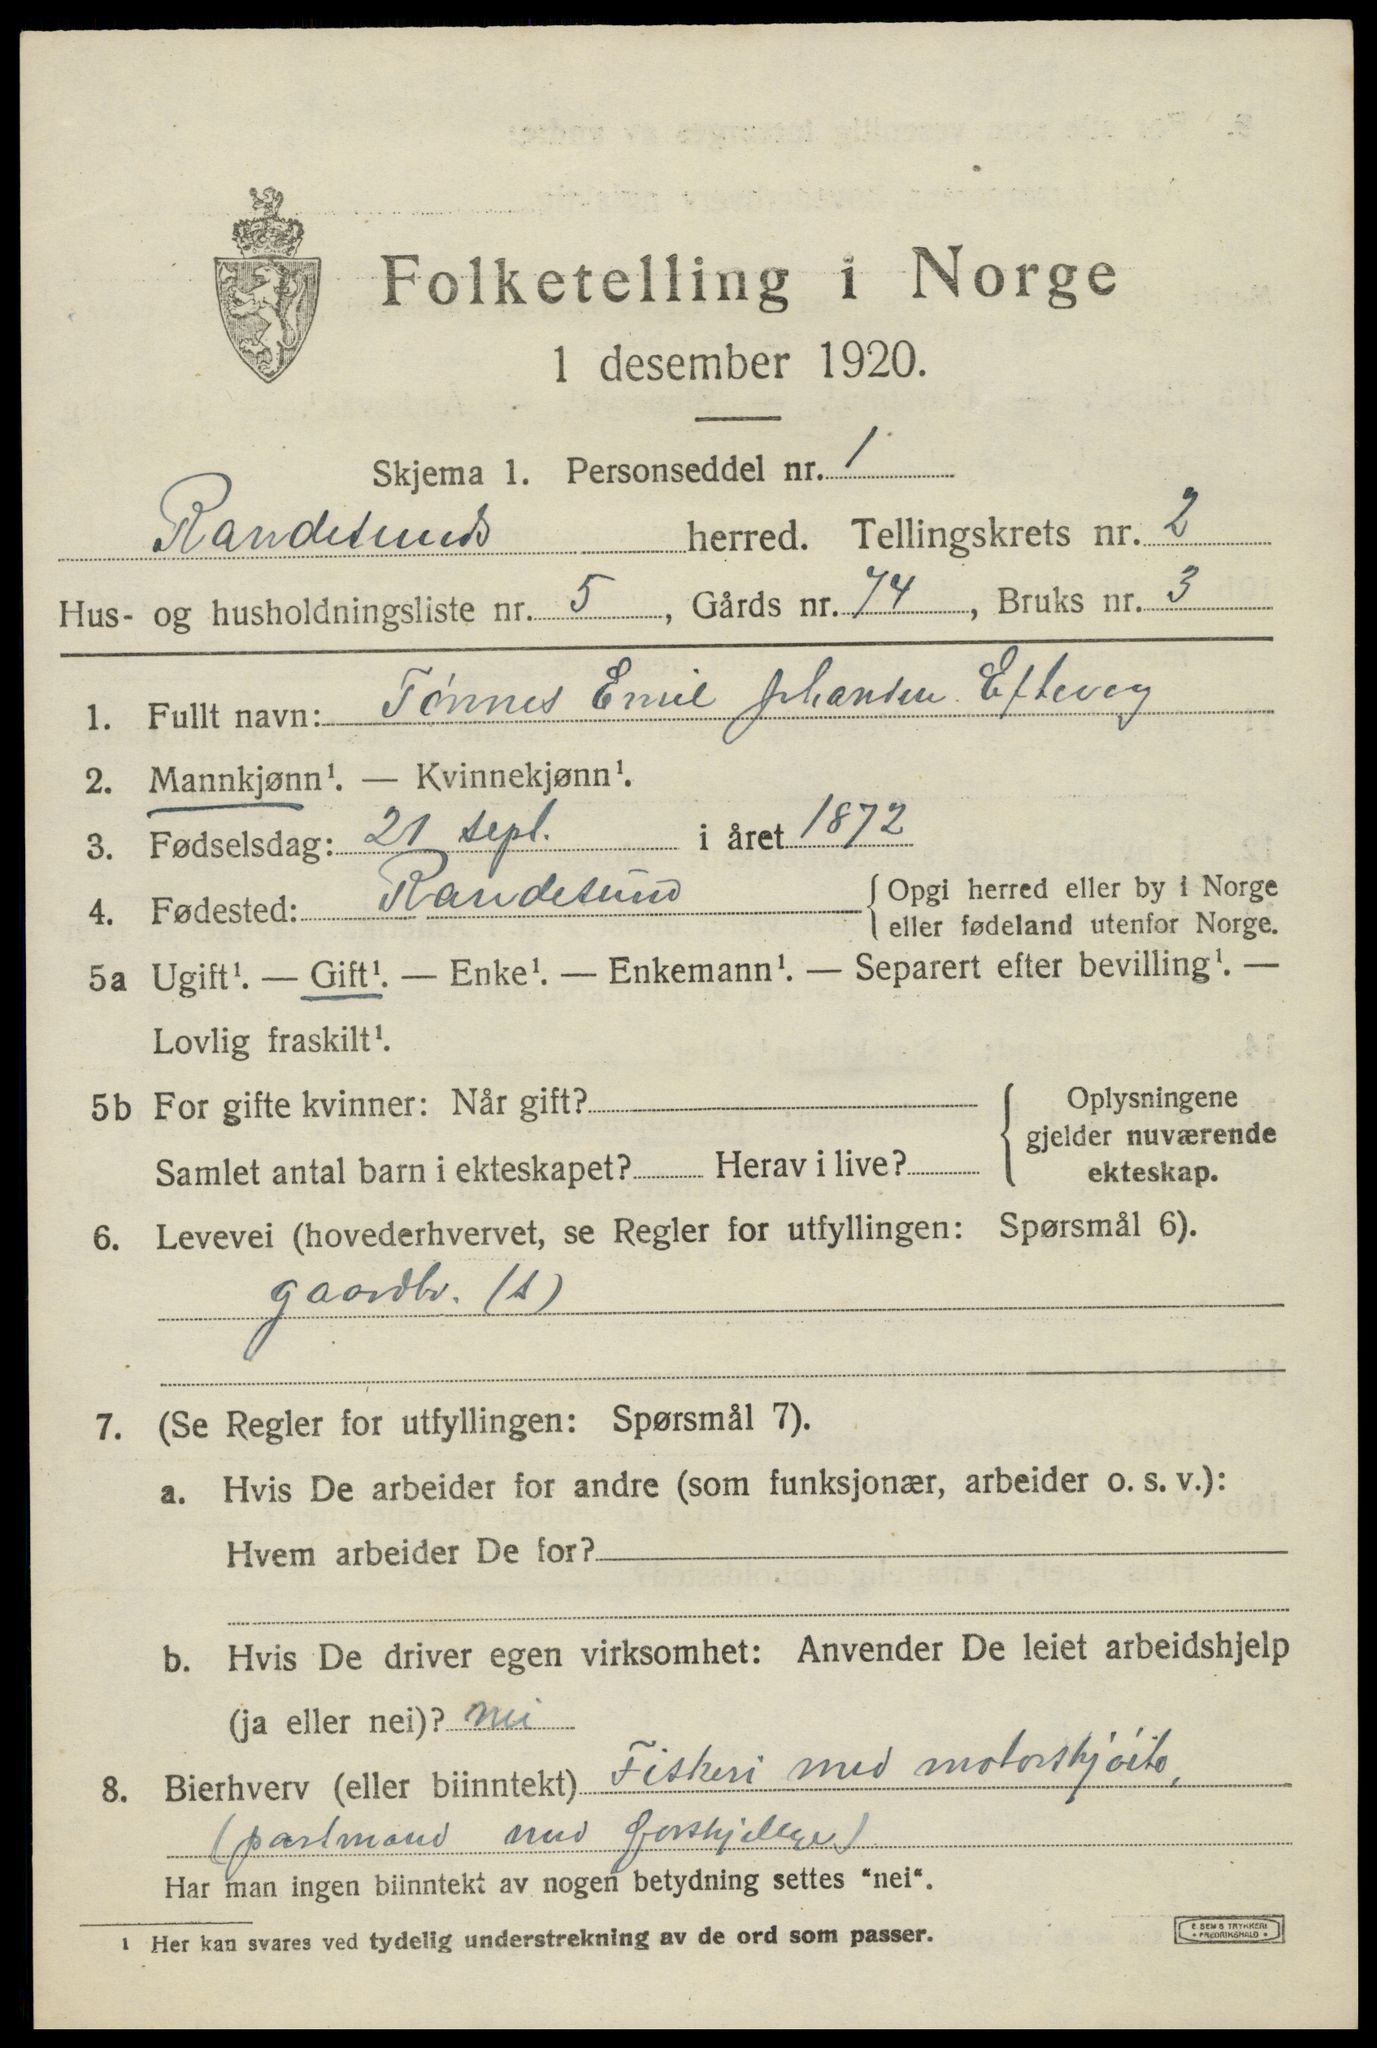 Folketelling i Norge
1 desember 1920.
Skjema 1. Personseddel nr. 1
Randesunds herred. Tellingskrets nr. 2
Hus- og husholdningsliste nr. 5, Gårds nr. 74, Bruks nr. 3
1. Fullt navn: Tønnes Emil Johansen Eftevog
2. Mannkjønn¹. — Kvinnekjønn¹.
3. Fødselsdag: 21 sept. i året 1872
4. Fødested: Randesund { Opgi herred eller by i Norge
eller fødeland utenfor Norge.
5a Ugift¹. — Gift¹. — Enke¹. — Enkemann¹. — Separert efter bevilling¹. —
Lovlig fraskilt¹.
5b For gifte kvinner: Når gift?
Samlet antal barn i ekteskapet? Herav i live?
Oplysningene
gjelder nuværende
ekteskap.
6. Levevei (hovederhvervet, se Regler for utfyllingen: Spørsmål 6).
gaardbr. (s)
7. (Se Regler for utfyllingen: Spørsmål 7).
a. Hvis De arbeider for andre (som funksjonær, arbeider o. s. v.):
Hvem arbeider De for?
b. Hvis De driver egen virksomhet: Anvender De leiet arbeidshjelp
(ja eller nei)? nei
8. Bierhverv (eller biinntekt) Fiskeri med motorskjøite,
(partmand med forskjellige)
Har man ingen biinntekt av nogen betydning settes "nei".
1 Her kan svares ved tydelig understrekning av de ord som passer.
E SEMS TRYKKERI
• FREDRIKSHALD •